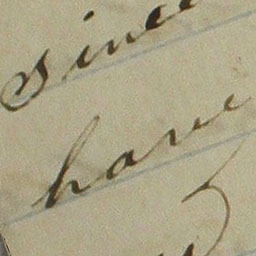 since
have